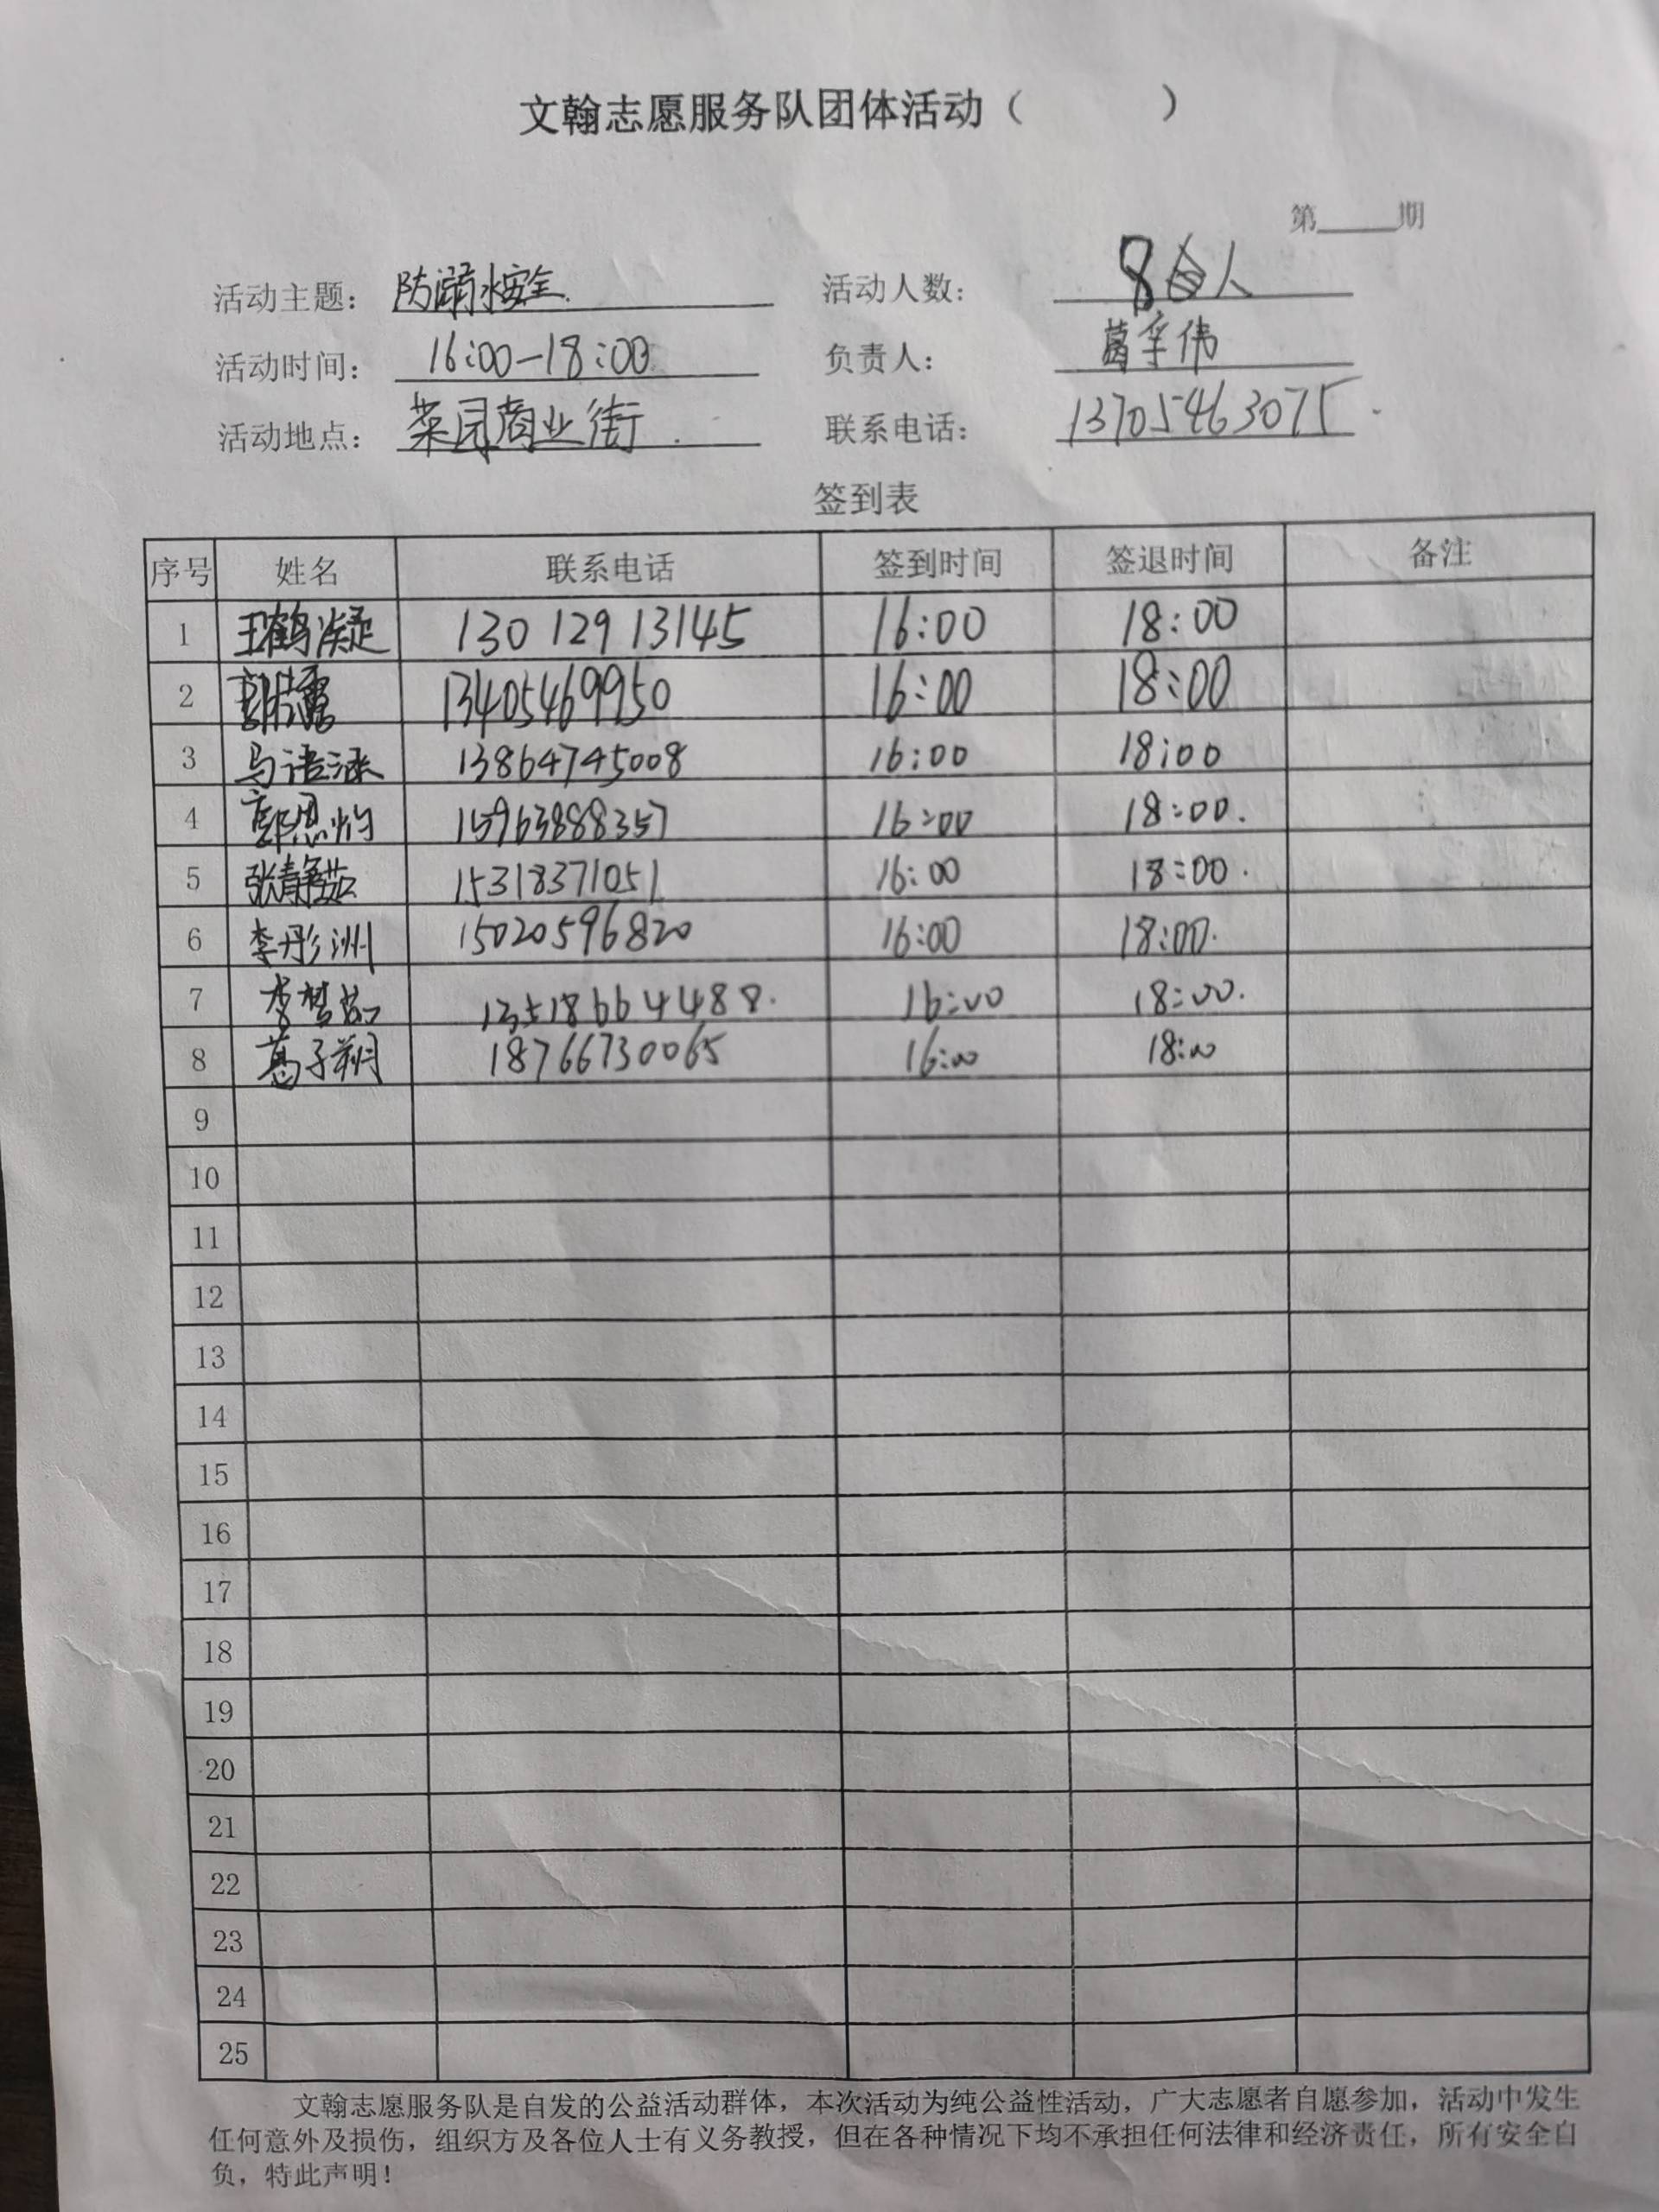 文翰志愿服务队团体活动（ ）
第____期
活动主题： 防溺水安全. 活动人数： 8人
活动时间： 16:00-18:00 负责人： 葛宇伟
活动地点： 菜园商业街. 联系电话： 13705463075.
签到表
序号 姓名 联系电话 签到时间 签退时间 备注
1 王鹤凝 130 129 13145 16:00 18:00
2 13405469950 16:00 18:00
3 马语涵 13864745008 16:00 18:00
4 郭思灼 15963888357 16:00 18:00.
5 张静茹 15318371051 16:00 18:00.
6 李彤洲 15020596820 16:00 18:00.
7 李梦茹 16:00 18:00.
8 葛子朔 18766730065 16:00 18:00
9
10
11
12
13
14
15
16
17
18
19
20
21
22
23
24
25
文翰志愿服务队是自发的公益活动群体，本次活动为纯公益性活动，广大志愿者自愿参加，活动中发生
任何意外及损伤，组织方及各位人士有义务教授，但在各种情况下均不承担任何法律和经济责任，所有安全自
负，特此声明！